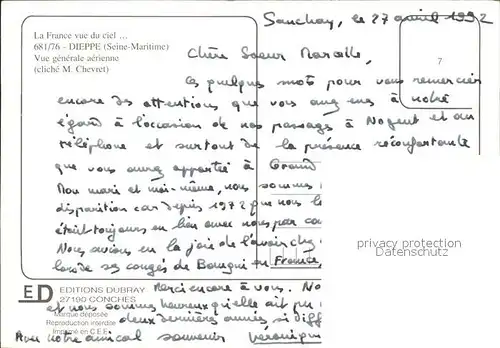 La France vue du ciel ...
681/76 - DIEPPE (Seine-Maritime)
Vue générale aérienne
(cliché M. Chevret)
7
Sauchay, le 27 avril 1992
Chère Soeur Marcelle,
Ces quelques mots pour vous remercier
encore des attentions que vous avez eues à notre
égard à l'occasion de nos passages à Nogent et au
téléphone et surtout de la présence réconfortante
que vous avez apportée à Grand
Mon mari et moi-même, nous sommes
disparition car depuis 1972 que nous l
était toujours en lien avec nous par co
Nous avions eu la joie de l'avoir chez
lors de ses congés de Bangui en France,
Merci encore à vous. No
et nous sommes heureux qu'elle ait pu
deux dernières années si diff
Avec notre amical souvenir Véronique
privacy protection
Datenschutz
ED EDITIONS DUBRAY
27190 CONCHES
Marque déposée
Reproduction interdite
Imprimé en C.E.E.